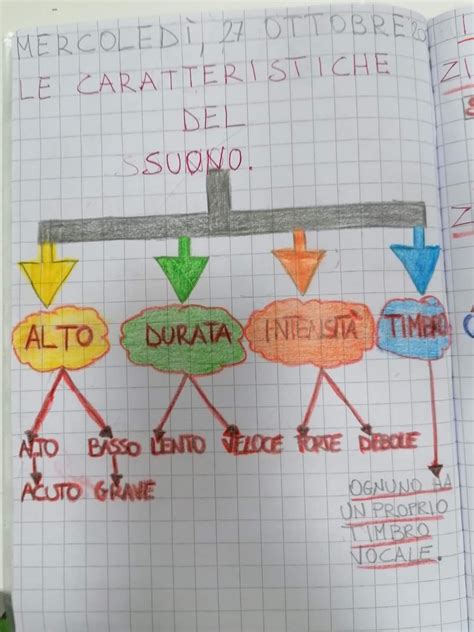 MERCOLEDÌ, 27 OTTOBRE
LE CARATTERISTICHE
DEL
SUONO.
ALTO DURATA INTENSITÀ TIMBRO
ALTO BASSO LENTO VELOCE FORTE DEBOLE
ACUTO GRAVE
OGNUNO HA
UN PROPRIO
TIMBRO
VOCALE.
ZI
Z